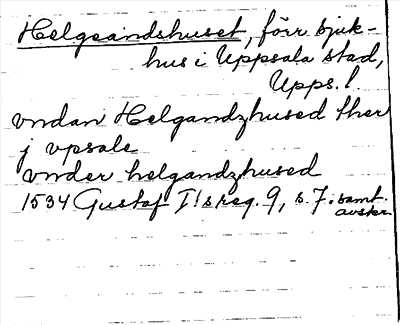 Helgeandshuset, förr sjuk-
hus i Uppsala stad,
Upps. l.
vndan Helgandzhused ther
j vpsale
vnder helgandzhused
1534 Gustaf I:s reg. 9, s. 7 i samt.
avskr.